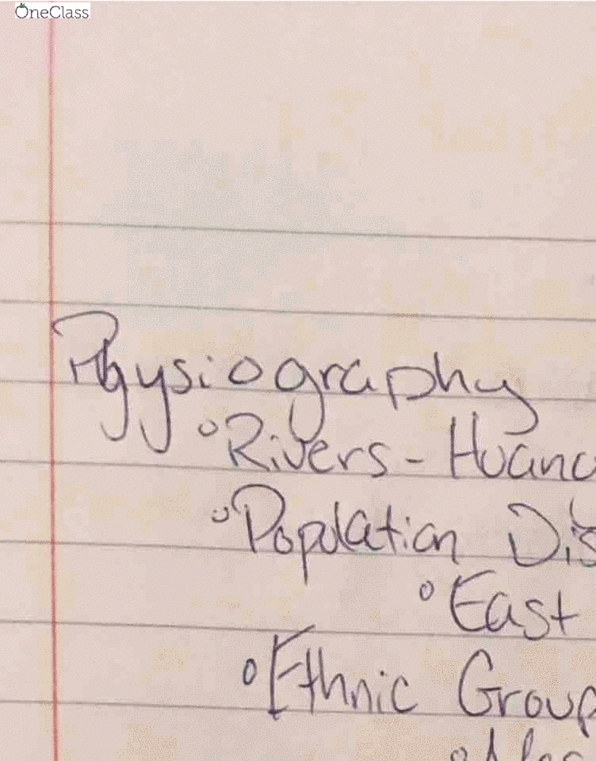 OneClass
Physiography
° Rivers - Huang
° Population Dis
° East
° Ethnic Group